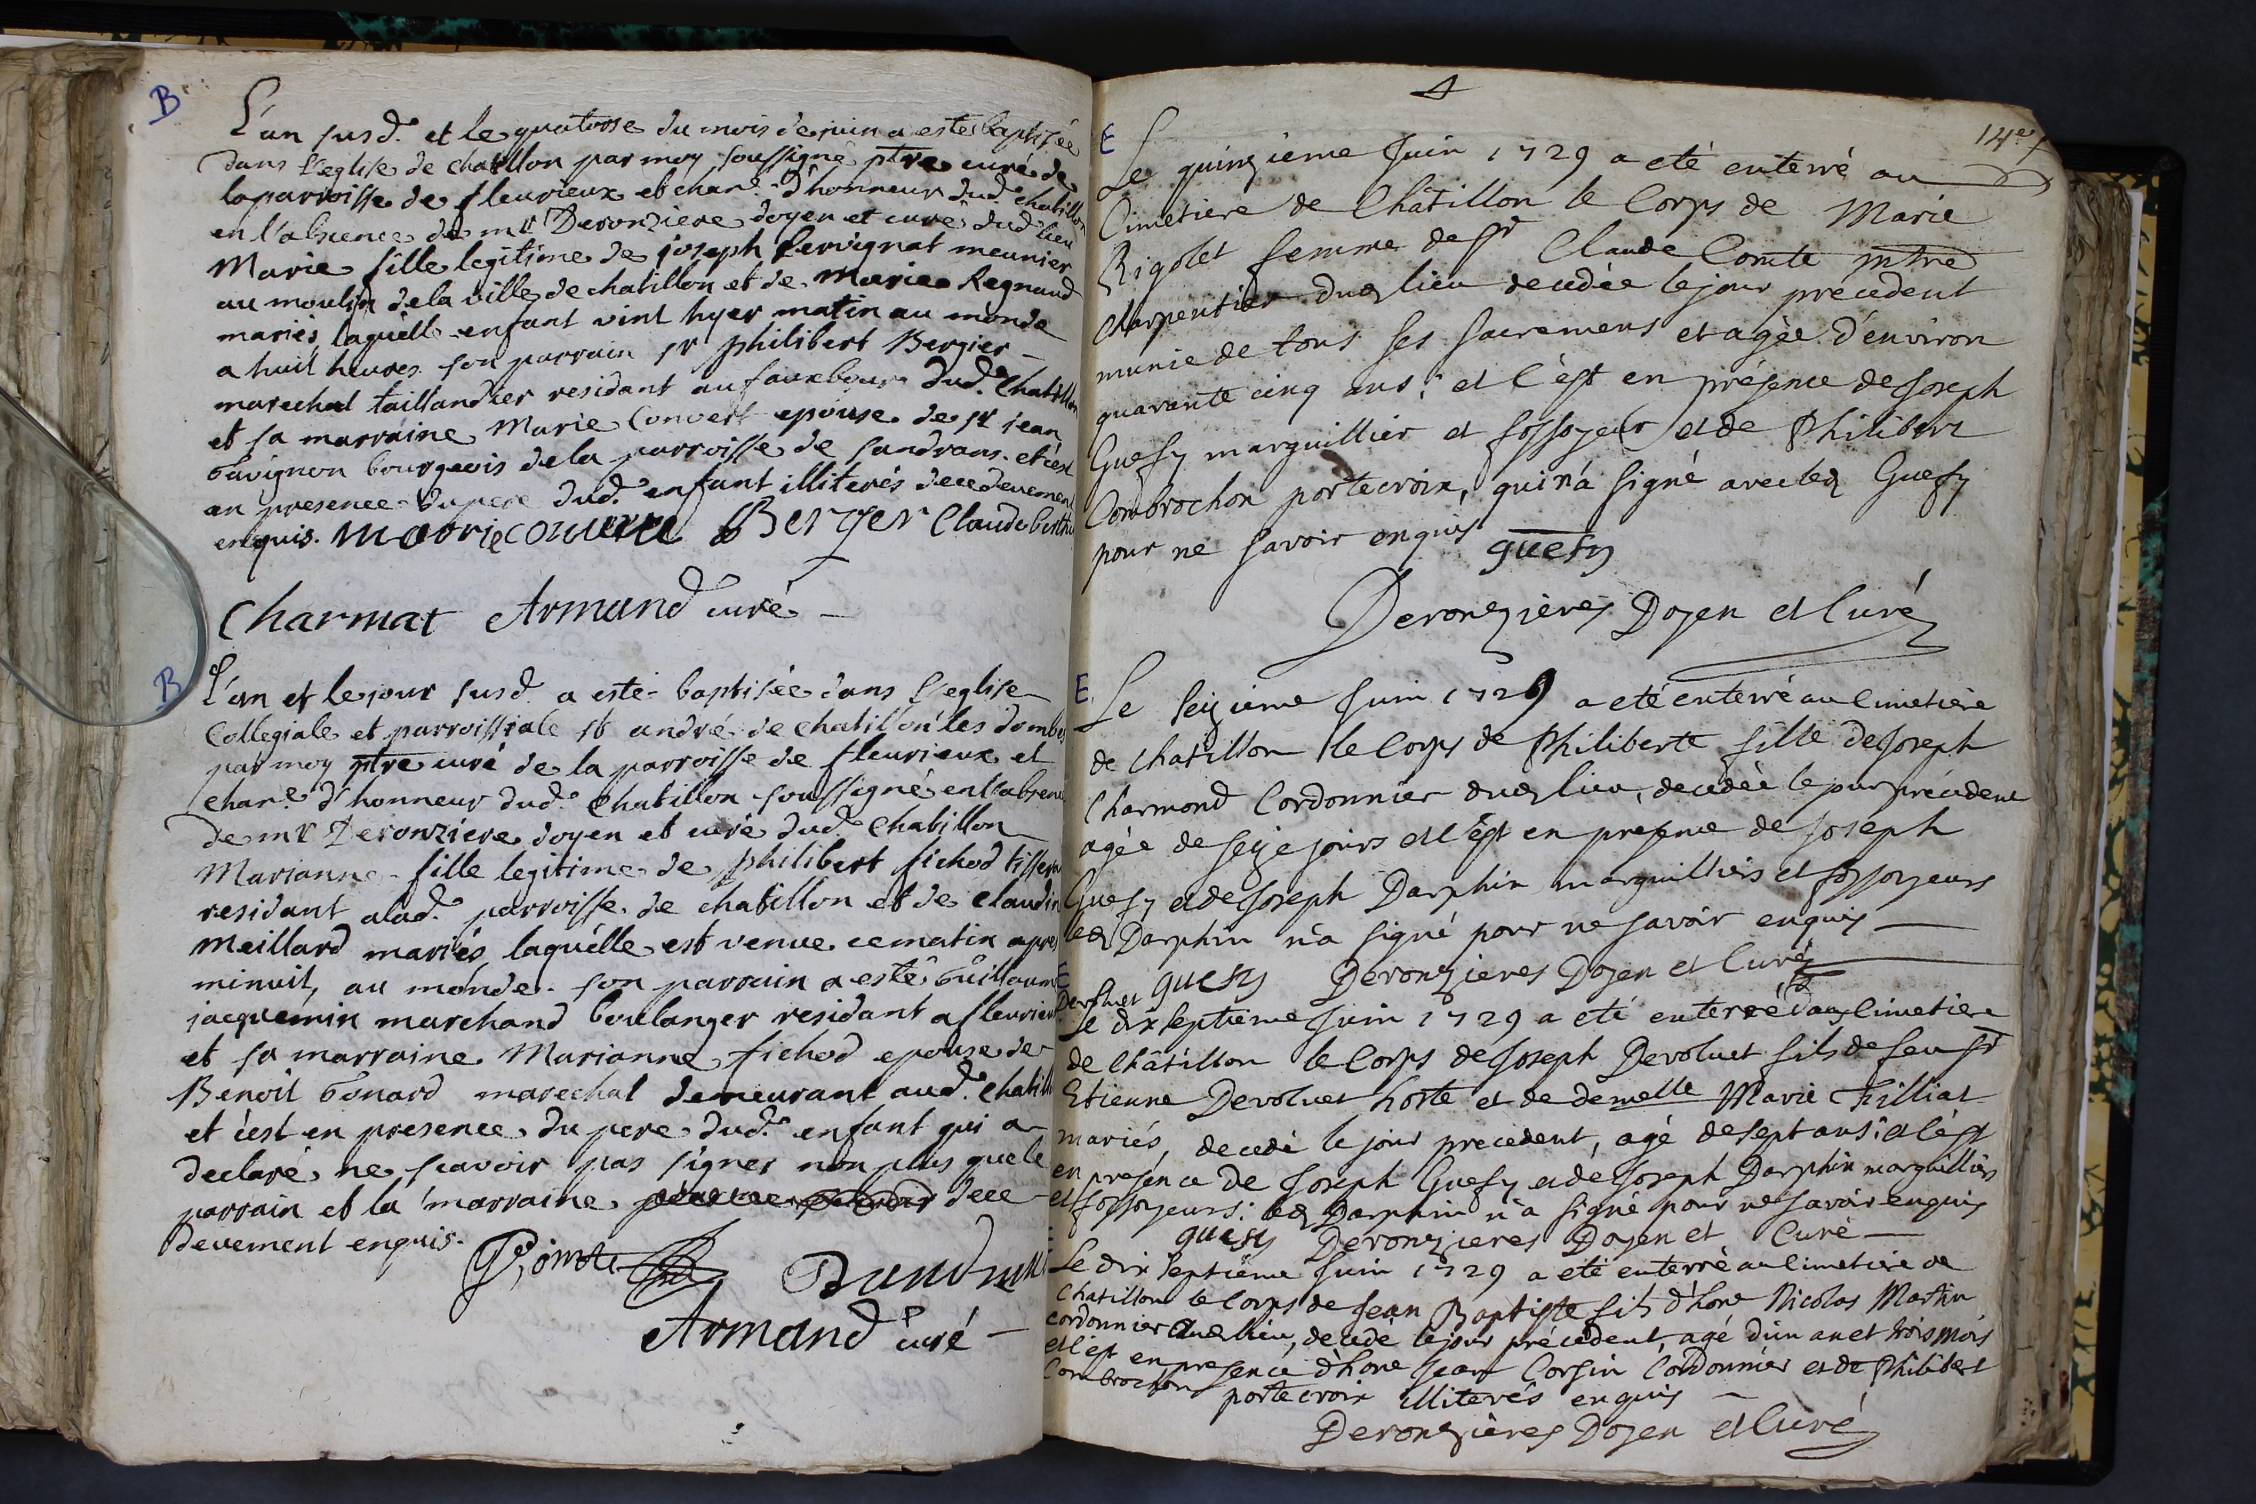 B
L'an susd. et le quatorse du mois de juin a este baptisée
dans l'eglise de chatillon par moy soussigné ptre curé de
la parroisse de fleurieux et chan.e d'honneur dud. chatillon
en l'absence de mr Deronziere doyen et curé dud. lieu
Marie fille legitime de joseph meunier
au moulin de la ville de chatillon et de Marie Regnaud
mariés, laquelle enfant vint hyer matin au monde
a huit heures son parrain sr philibert Bergier
marechal taillandier residant au fauxbourg dud. Chatillon
et sa marraine Marie Convert epouse de sr jean
bourgeois de la parroisse de sandrans. et c'est
en presence du pere dud. enfant illiterés de ce devement
enquis. Berger Claude
Charmat Armand curé
B
L'an et le jour susd. a esté baptisée dans l'eglise
Collegiale et parroissiale st andré de chatillon les dombes
par moy ptre curé de la parroisse de fleurieux et
chan.e d'honneur dud. Chatillon soussigné en l'absence
de mr Deronziere doyen et curé dud. Chatillon
Marianne fille legitime de philibert fichod
residant a lad. parroisse de chatillon et de claudine
Meillard mariés, laquelle est venue ce matin apres
minuit, au monde. son parrain a esté Guillaume
jacquemin marchand boulanger residant a fleurieux
et sa marraine Marianne fichod epouse de
Benoit Gonard marechal demeurant aud. Chatillon
et c'est en presence du pere dud. enfant qui a
declaré ne scavoir pas signer non plus que le
parrain et la marraine de ce
devement enquis.
Armand curé
E
Le quinzieme Juin 1729 a eté enterré au
Cimetiere de Châtillon le Corps de Marie
Rigolet femme de sr Claude Comte mtre
charpentier dud lieu decedée le jour précedent
munie de tous ses sacremens et agée d'environ
quarante cinq ans; et c'est en présence de Joseph
Guesy marguillier et fossoyeur et de Philibert
Combrochon portecroix, qui n'a signé avec led Guesy
pour ne savoir enquis guesy
Deronzieres Doyen et Curé
E
Le seizieme Juin 1729 a eté enterré au Cimetiere
de chatillon le Corps de Philiberte fille de Joseph
Charmond Cordonnier dud lieu, decedée le jour précedent
agée de seize jours et c'est en presence de Joseph
Guesy et de Joseph Darphin marguilliers et fossoyeurs
led Darphin n'a signé pour ne savoir enquis
guesy Deronzieres Doyen et Curé
E
Devoluet
Le dix septieme Juin 1729 a eté enterré au Cimetiere
de Châtillon le Corps de Joseph Devoluet fils de feu sr
Etienne Devoluet hoste et de demelle Marie Filliat
mariés, decedé le jour precedent, agé de sept ans: et c'est
en presence de Joseph Guesy et de Joseph Darphin marguilliers
et fossoyeurs: led Darphin n'a signé pour ne savoir enquis
guesy Deronzieres Doyen et Curé
Le dix septieme Juin 1729 a eté enterré au Cimetiere de
Chatillon le Corps de Jean Baptiste fils d'hone Nicolas Martin
cordonnier dud lieu, decedé le jour précedent, agé d'un an et trois mois
et c'est en presence d'hone Jean Corsin Cordonnier et de Philibert
Combrochon portecroix illiterés enquis
Deronzieres Doyen et Curé